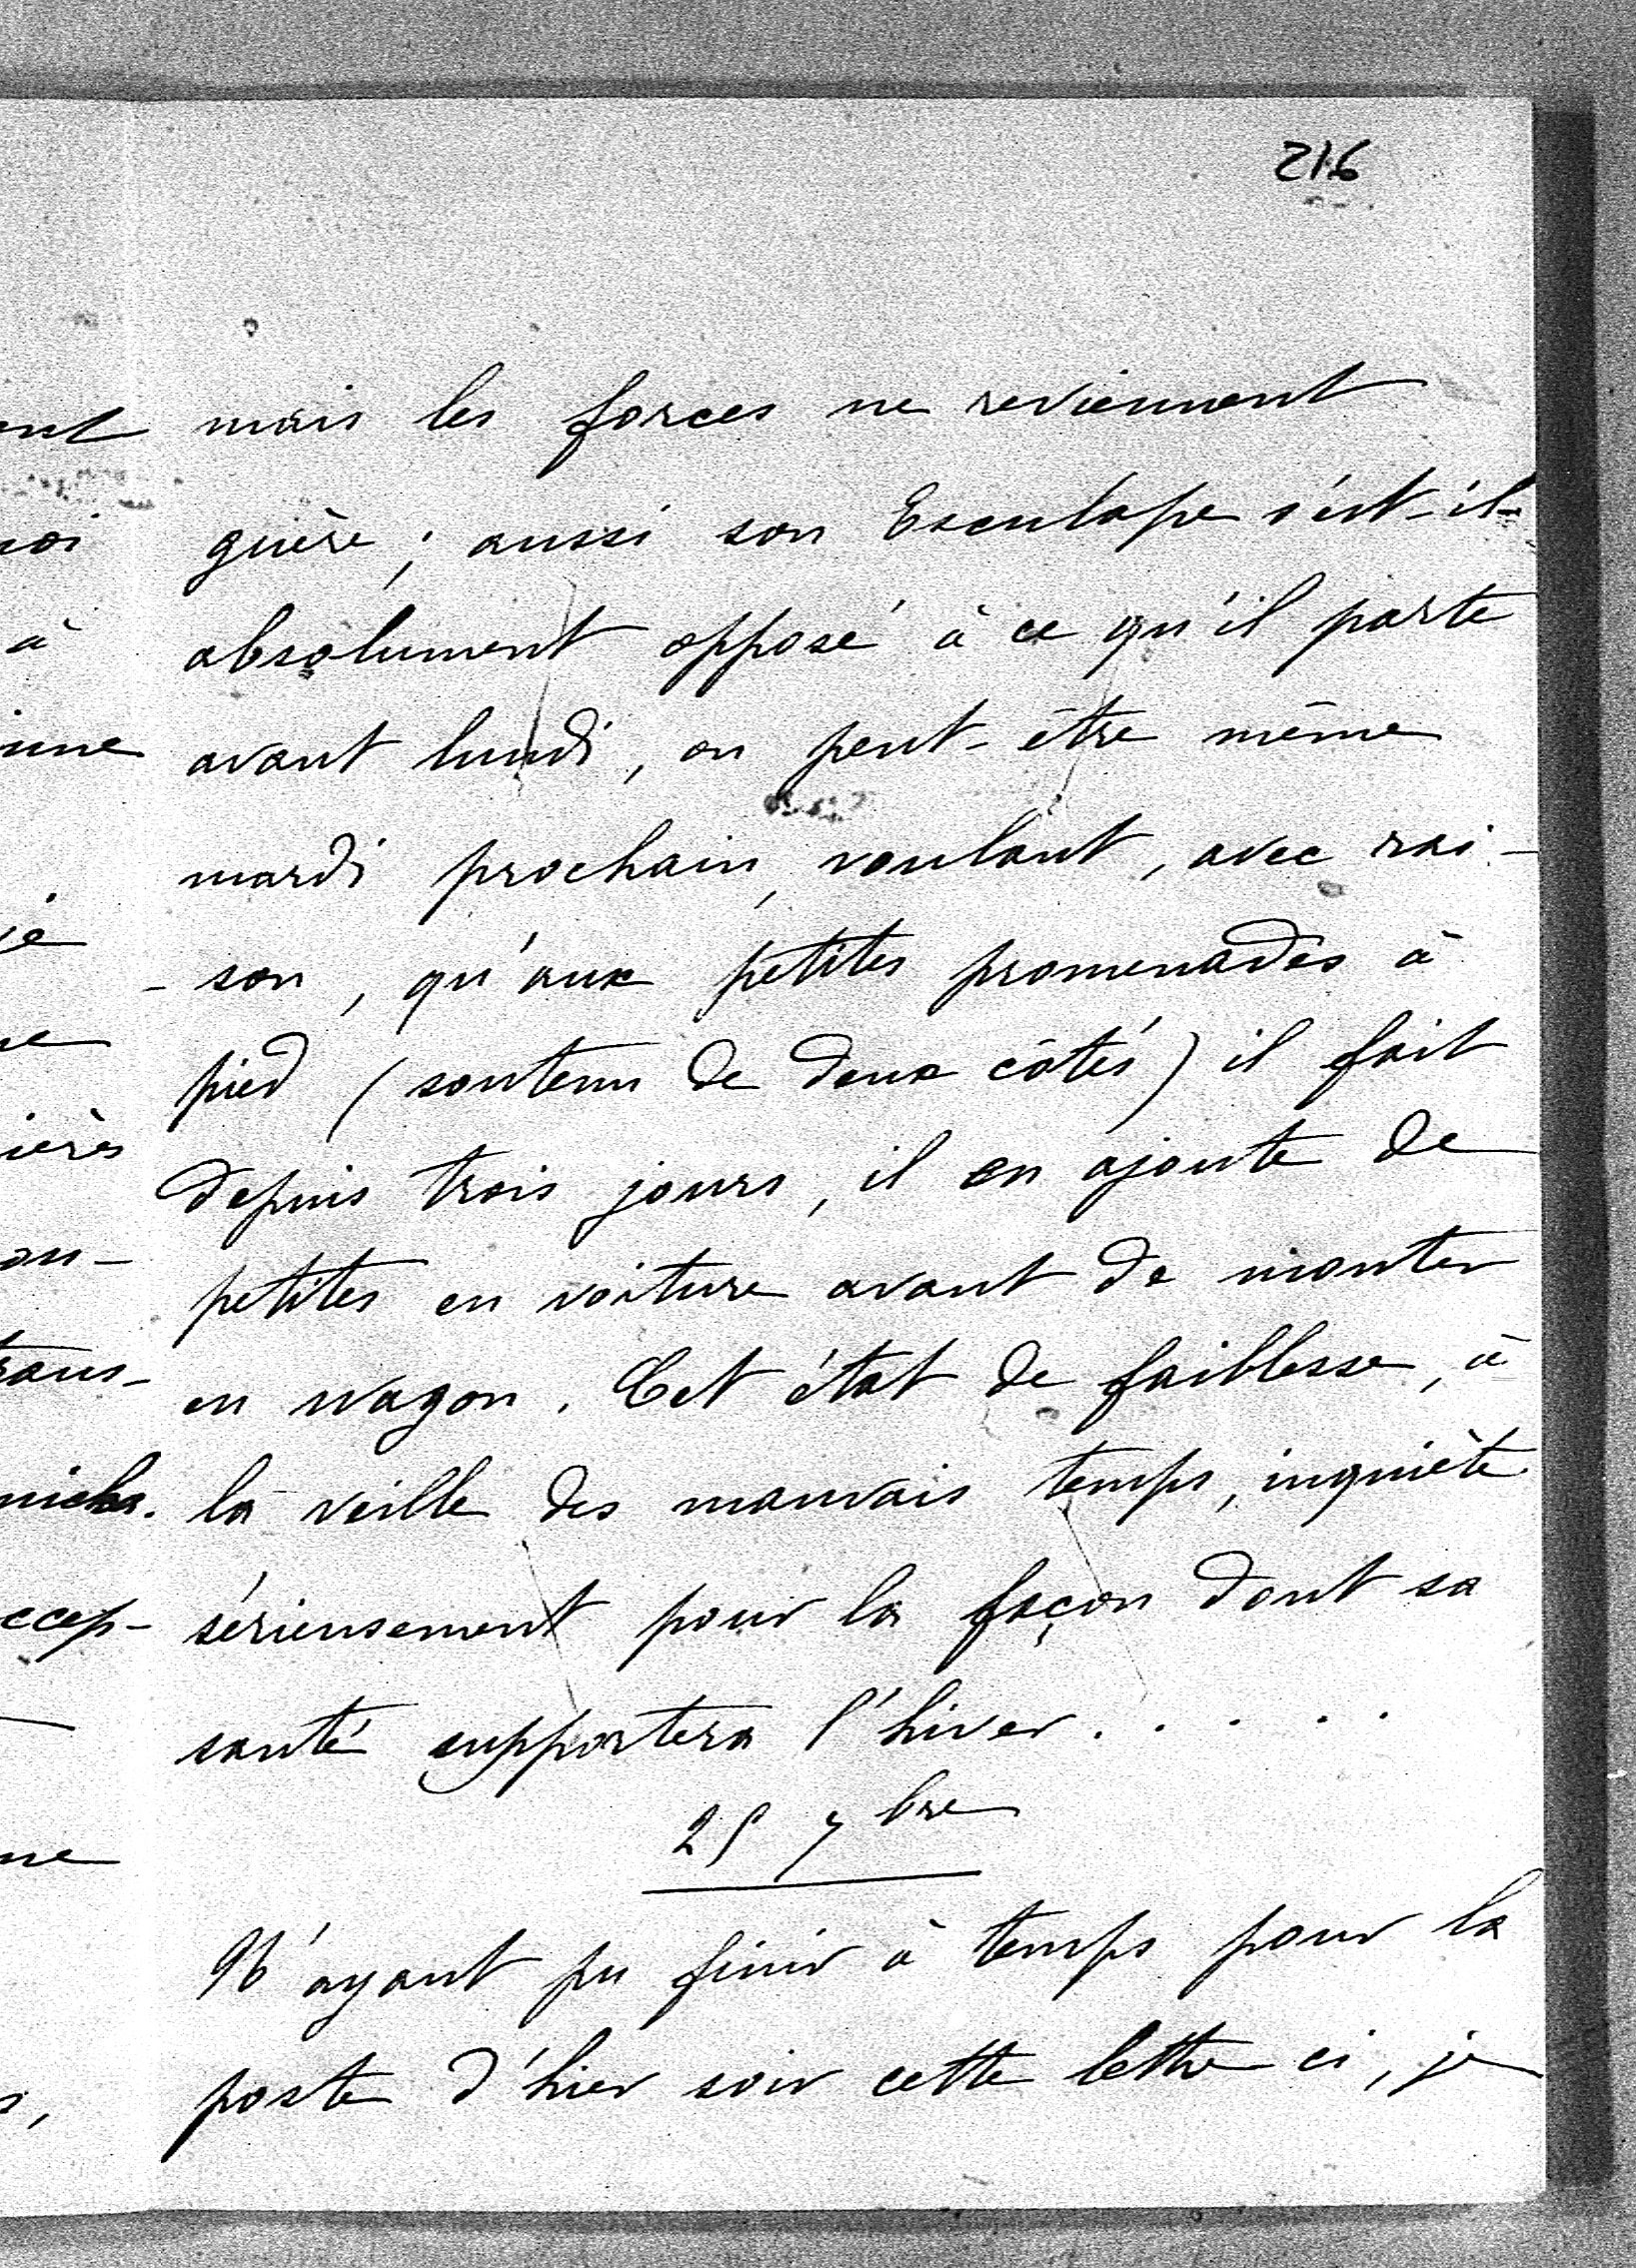 216
mais les forces ne reviennent
guère ; aussi son Esculape s'est-il
absolument opposé à ce qu'il parte
avant lundi, ou peut-être même
mardi prochain, voulant, avec rai-
-son, qu'aux petites promenades à
pied (soutenu de deux côtés) il fait
depuis trois jours, il en ajoute de
petites en voiture avant de monter
en wagon. Cet état de faiblesse, à
la veille des mauvais temps, inquiète
sérieusement pour la façon dont sa
santé supportera l'hiver. . . . .
25 7bre
N'ayant pu finir à temps pour la
poste d'hier soir cette lettre ci, je